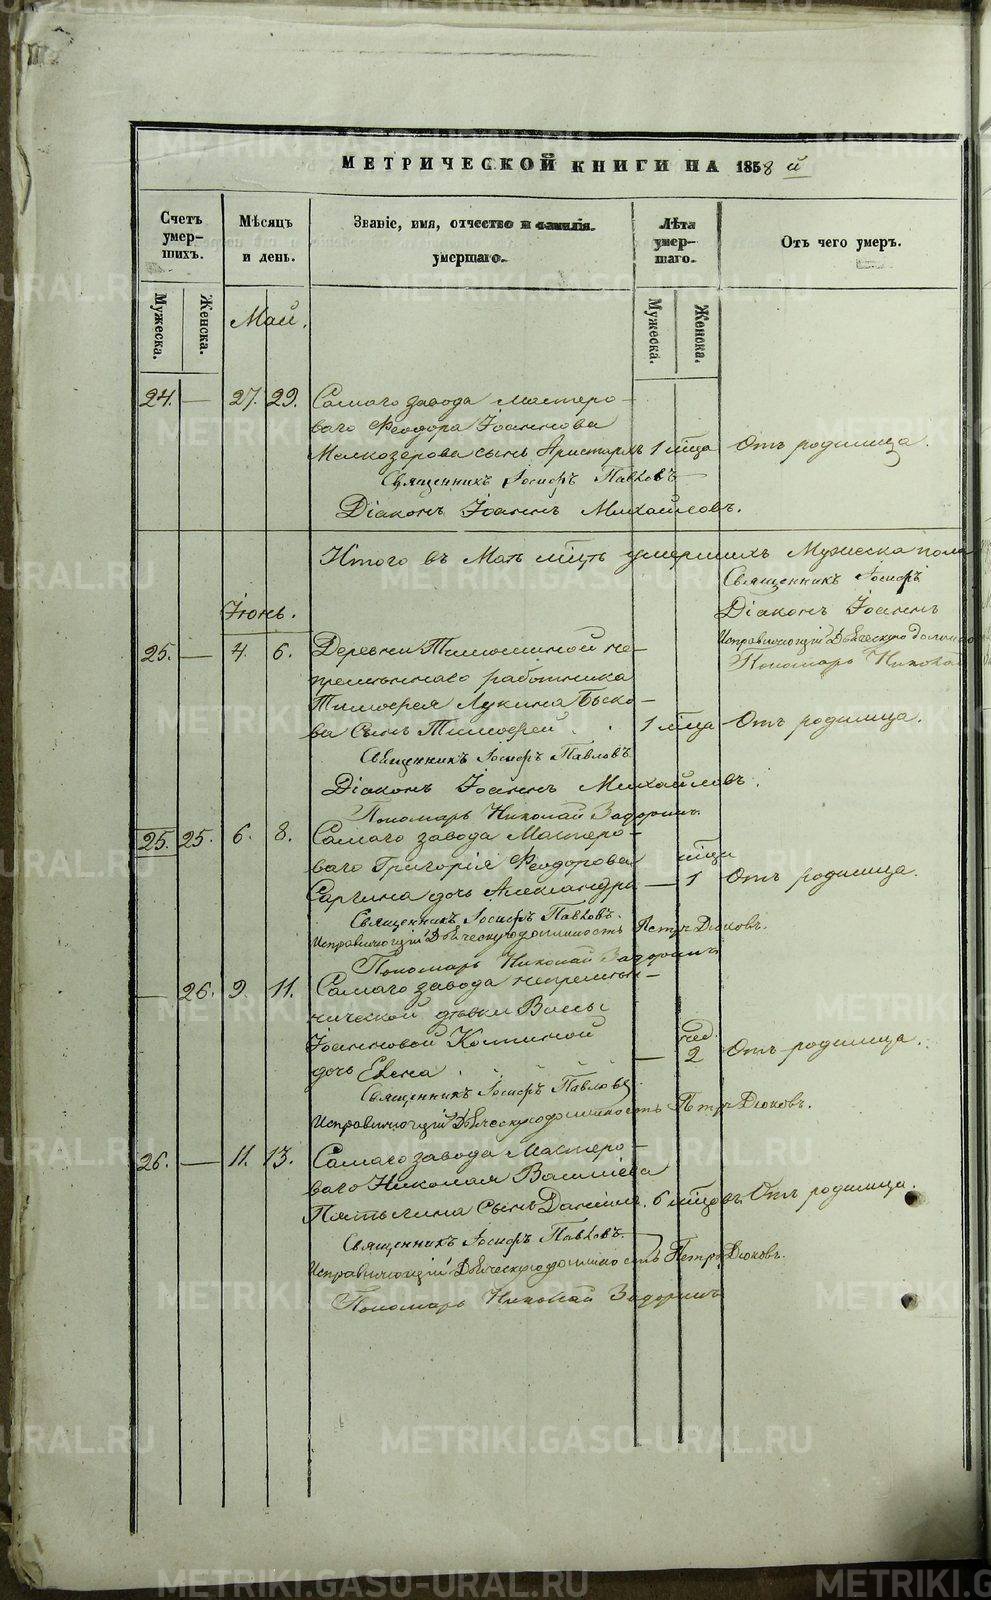 МЕТРИЧЕСКОЙ КНИГИ НА 1858 й
Счетъ умер-шихъ.
Мѣсяцъ и день.
Званіе, имя, отчество и фамилія умершаго.
Лѣта умер-шаго.
Отъ чего умеръ.
Мужеска.
Женска.
Май.
Мужеска.
Женска.
24. — 27. 29. Самаго завода Мастеро-
ваго Ѳеодора Іоаннова
Мелкозерова сынъ Аристархъ 1 мца Отъ родимца.
Священникъ Іосифъ Павловъ
Діаконъ Іоаннъ Михайловъ.
Итого въ Маѣ мцѣ умершихъ Мужеска пола
Священникъ Іосифъ
Діаконъ Іоаннъ
Исправляющій Дьяческую должно
Пономарь Николай
Іюнь.
25. — 4. 6. Деревни не-
премѣннаго работника
Тимоѳея Лукина Быко-
ва сынъ Тимоѳей 1 мца Отъ родимца.
Священникъ Іосифъ Павловъ
Діаконъ Іоаннъ Михайловъ.
Пономарь Николай Задоринъ
25. 25. 6. 8. Самаго завода Мастеро-
ваго Григорія Ѳеодорова мца
Саргина дочь Александра — 1 Отъ родимца.
Священникъ Іосифъ Павловъ.
Исправляющій Дьяческую должность Петръ Дюковъ.
Пономарь Николай Задоринъ
— 26. 9 11. Самаго завода
дѣвки
Іоанновой нед.
дочь Елена — 2 Отъ родимца.
Священникъ Іосифъ Павловъ
Исправляющій Дьяческую должность Петръ Дюковъ.
26. — 11. 13. Самаго завода Мастеро-
ваго Николая Василіева
Пятыгина сынъ Даніилъ. 6 мцовъ. Отъ родимца.
Священникъ Іосифъ Павловъ.
Исправляющій Дьяческую должность Петръ Дюковъ.
Пономарь Николай Задоринъ
METRIKI.GASO-URAL.RU